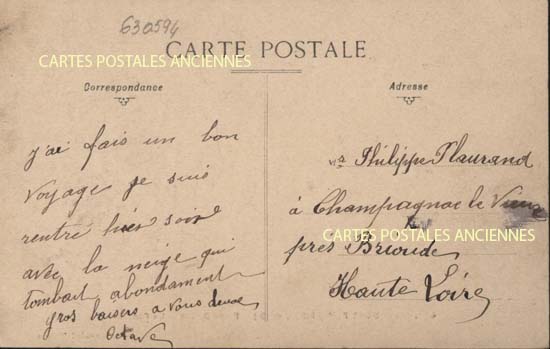 630594
CARTE POSTALE
CARTES POSTALES ANCIENNES
Correspondance
j'ai fais un bon
voyage je suis
rentre hier soir
avec la neige qui
tombait abondament
gros baisers a vous deux
Octave
Adresse
Philippe Plaurand
à Champagnac le Vieux
CARTES POSTALES ANCIENNES
près Brioude
Haute Loire